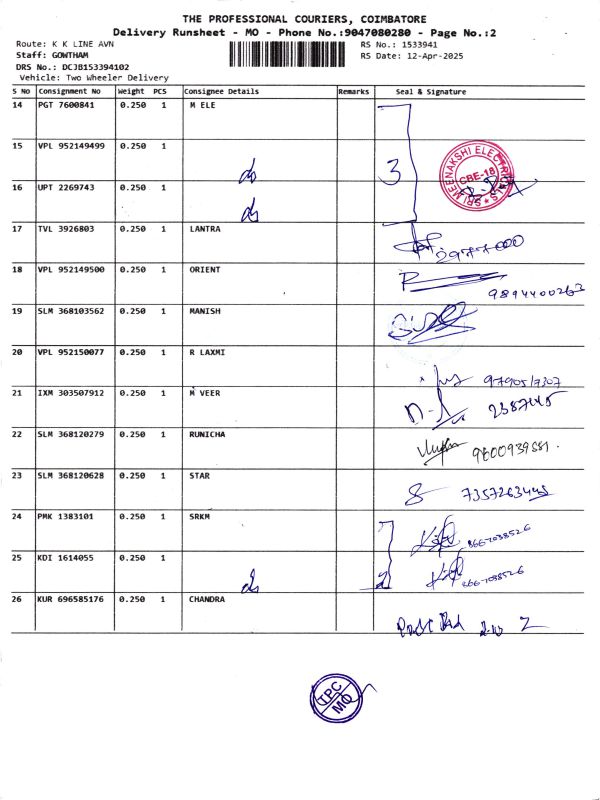 THE PROFESSIONAL COURIERS, COIMBATORE
Delivery Runsheet - MO - Phone No.:9047080280 - Page No.:2
Route: K K LINE AVN RS No.: 1533941
Staff: GOWTHAM RS Date: 12-Apr-2025
DRS No.: DCJB153394102
Vehicle: Two Wheeler Delivery
S No Consignment No Weight PCS Consignee Details Remarks Seal & Signature
14 PGT 7600841 0.250 1 M ELE
15 VPL 952149499 0.250 1
3
SRI MEENAKSHI ELECTRICALS
CBE-18
16 UPT 2269743 0.250 1
17 TVL 3926803 0.250 1 LANTRA
2977000
18 VPL 952149500 0.250 1 ORIENT
9894400263
19 SLM 368103562 0.250 1 MANISH
20 VPL 952150077 0.250 1 R LAXMI
9790517307
21 IXM 303507912 0.250 1 M VEER
2387445
22 SLM 368120279 0.250 1 RUNICHA
9600939581.
23 SLM 368120628 0.250 1 STAR
24 PMK 1383101 0.250 1 SRKM
8667038526
25 KDI 1614055 0.250 1
2
8667038526
26 KUR 696585176 0.250 1 CHANDRA
TPC
MO